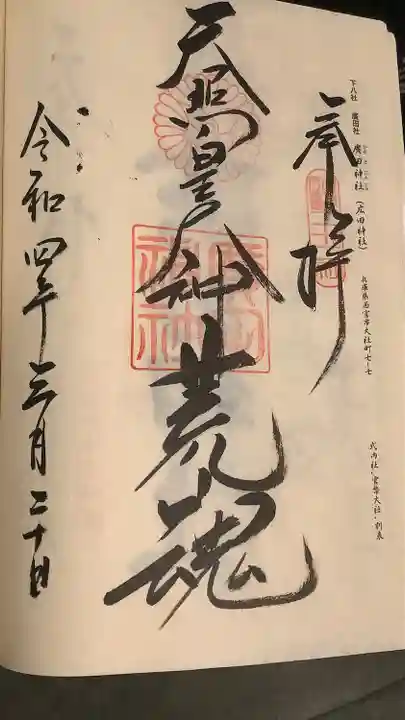 下八社 廣田社 廣田神社(広田神社)
兵庫県西宮市大社町七-七
式内社・官幣大社・別表
奉拝
天照皇大神荒魂
廣田神社
令和四年三月二十日